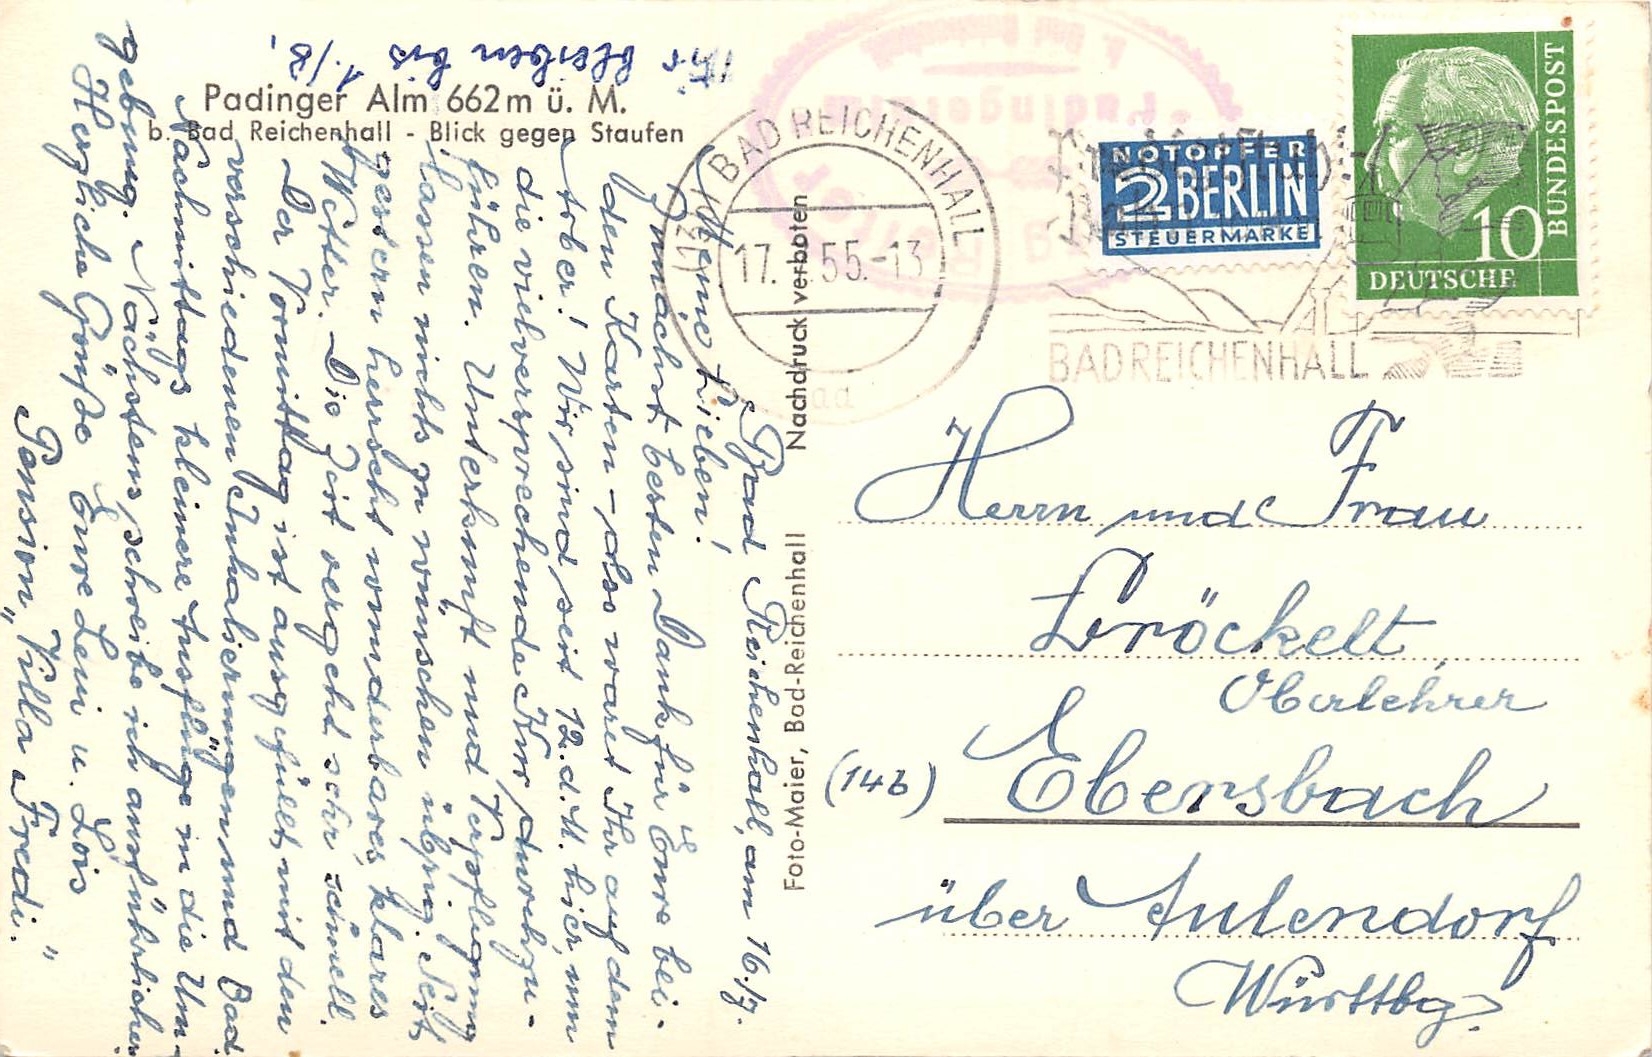 Padinger Alm 662m ü. M.
b. Bad Reichenhall - Blick gegen Staufen
Wir bleiben bis 1./8.
Bad Reichenhall, am 16./7.
Meine Lieben!
Zunächst besten Dank für Eure bei-
den Karten - also waret Ihr auf dem
! Wir sind seit 12. d. M. hier, um
die vielversprechende Kur durchzu-
führen. Unterkunft und Verpflegung
lassen nichts zu wünschen übrig. Seit
gestern herrscht wunderbares, klares
Wetter. Die Zeit vergeht sehr schnell.
Der Vormittag ist ausgefüllt mit den
verschiedenen Inhalierungen und Bad.
Nachmittags kleinere Ausflüge in die Um-
gebung. Nächstens schreibe ich ausführlicher.
Herzliche Grüße Eure Leni u. Lois
Pension „Villa Fredi."
Foto-Maier, Bad-Reichenhall Nachdruck verboten
(13b) BAD REICHENHALL
17. 55.-13
BAD REICHENHALL
NOTOPFER
2 BERLIN
STEUERMARKE
10
DEUTSCHE
BUNDESPOST
Herrn und Frau
Bröckelt
Oberlehrer
(14b) Ebersbach
über Aulendorf
Württbg.